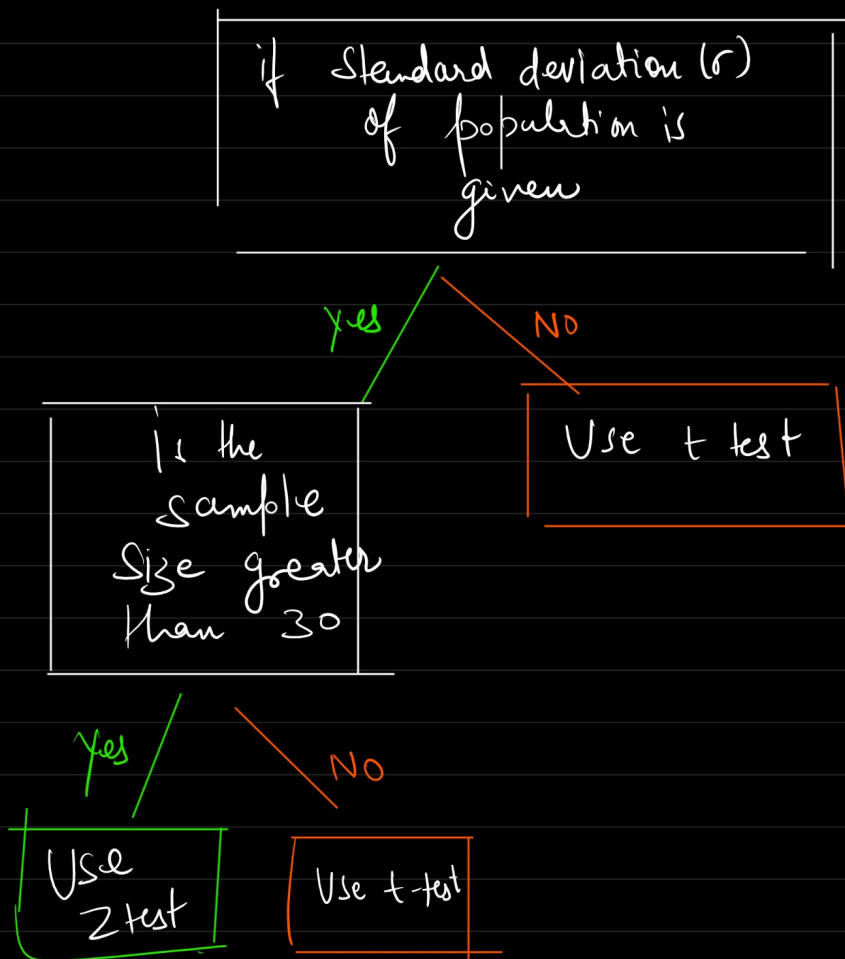 if Standard deviation (σ)
of population is
given
Yes
NO
Is the
sample
Size greater
than 30
Use t test
Yes
NO
Use
Z test
Use t-test